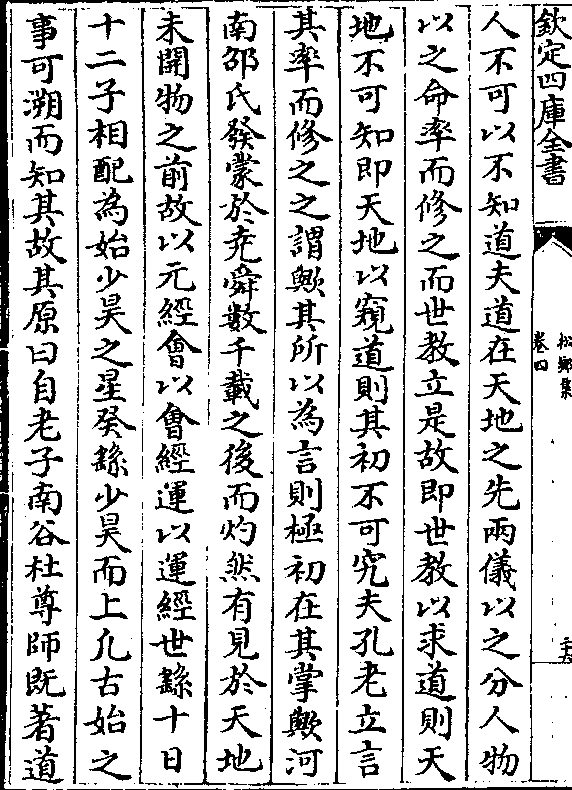 欽定四庫全書
松鄉集
卷四
人不可以不知道夫道在天地之先兩儀以之分人物
以之命率而修之而世教立是故即世教以求道則天
地不可知即天地以窺道則其初不可究夫孔老立言
其率而修之之謂歟其所以為言則極初在其掌歟河
南邵氏發蒙於堯舜數千載之後而灼然有見於天地
未開物之前故以元經會以會經運以運經世繇十日
十二子相配為始少昊之星癸繇少昊而上凢古始之
事可溯而知其故其原曰自老子南谷杜尊師既著道